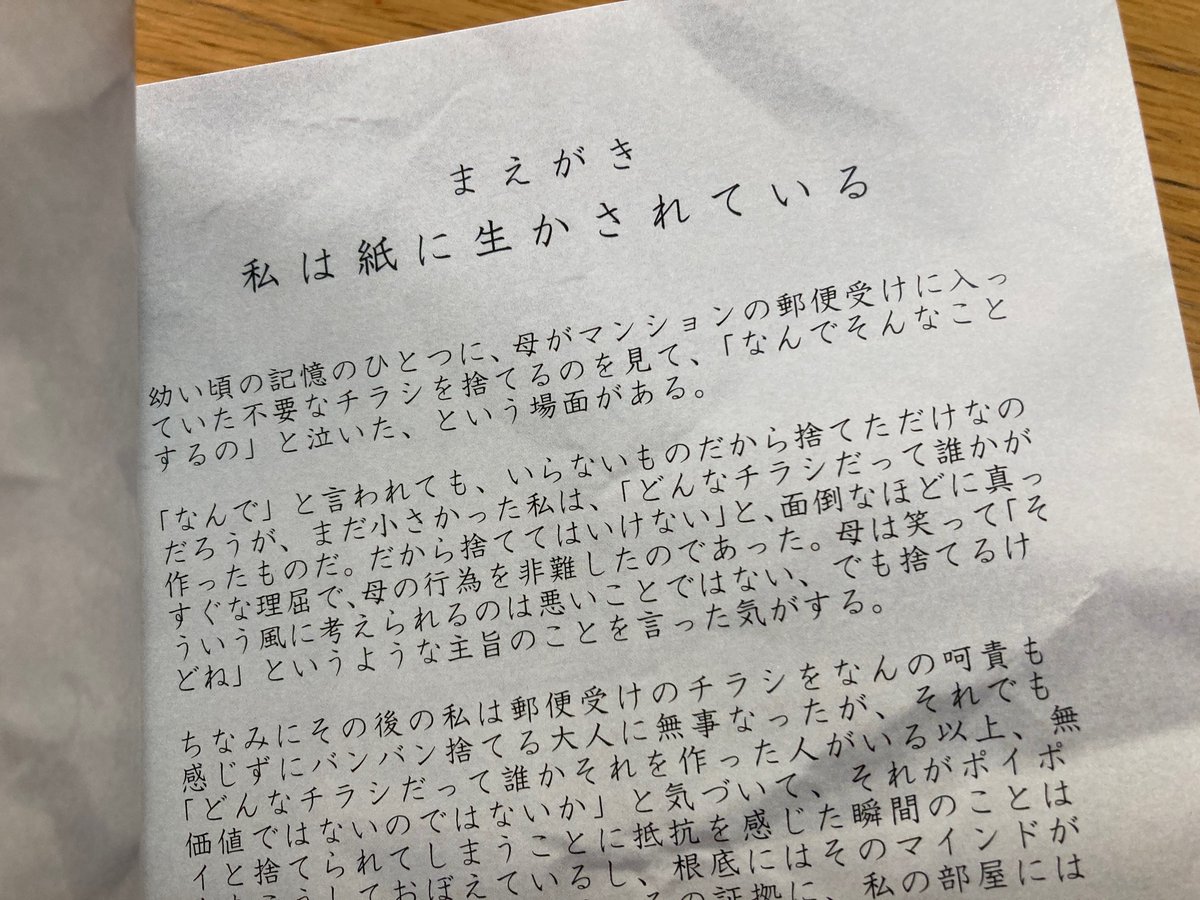 まえがき
私は紙に生かされている
幼い頃の記憶のひとつに、母がマンションの郵便受けに入っ
ていた不要なチラシを捨てるのを見て、「なんでそんなこと
するの」と泣いた、という場面がある。
「なんで」と言われても、いらないものだから捨てただけなの
だろうが、まだ小さかった私は、「どんなチラシだって誰かが
作ったものだ。だから捨ててはいけない」と、面倒なほどに真っ
すぐな理屈で、母の行為を非難したのであった。母は笑って「そ
ういう風に考えられるのは悪いことではない、でも捨てるけ
どね」というような主旨のことを言った気がする。
ちなみにその後の私は郵便受けのチラシをなんの呵責も
感じずにバンバン捨てる大人に無事なったが、それでも
「どんなチラシだって誰かそれを作った人がいる以上、無
価値ではないのではないか」と気づいて、それがポイポ
イと捨てられてしまうことに抵抗を感じた瞬間のことは
しておぼえているし、根底にはそのマインドが
の証拠に、私の部屋には